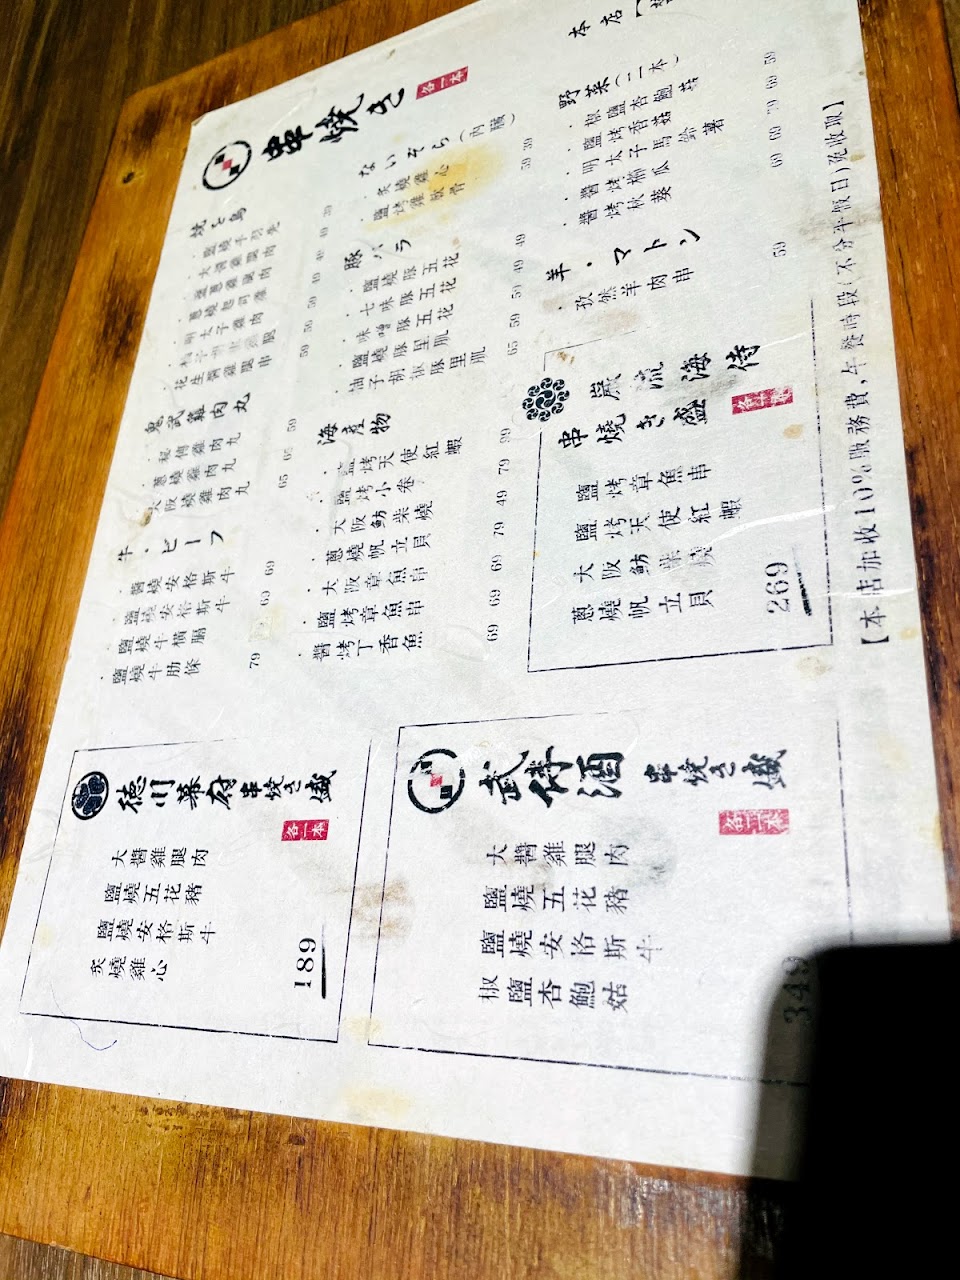 串焼き
各一本
焼き鳥
・大醬雞腿肉
・明太子雞肉
・花生醬雞腿串
鬼武雞肉丸
・秘傳雞肉丸
・蔥燒雞肉丸
・大阪燒雞肉丸 65
牛・ビーフ
・醬燒安格斯牛 69
・鹽燒安格斯牛 69
・鹽燒牛橫膈
・鹽燒牛肋條 79
ないぞう(內臟)
・炙燒雞心 39
・鹽烤雞軟骨 59
豚バラ
・鹽燒豚五花 49
・七味豚五花 49
・味噌豚五花 59
・鹽燒豚里肌 59
・柚子胡椒豚里肌 65
海產物
・鹽烤天使紅蝦 99
・鹽烤小卷 79
・大阪魴柴燒 49
・蔥燒帆立貝 79
・大阪章魚串 69
・鹽烤章魚串 69
・醬烤丁香魚 69
野菜(二本)
・椒鹽杏鮑菇 59
・鹽烤香菇 69
・明太子馬鈴薯 79
・醬烤櫛瓜 69
・醬烤秋葵 69
羊・マトン
・孜然羊肉串 59
巌流海侍
串燒き盛
各一本
鹽烤章魚串
鹽烤天使紅蝦
大阪魴柴燒
蔥燒帆立貝
269
德川幕府串焼き盛
各一本
大醬雞腿肉
鹽燒五花豬
鹽燒安格斯牛
炙燒雞心
189
武侍酒
串焼き盛
各二本
大醬雞腿肉
鹽燒五花豬
鹽燒安格斯牛
椒鹽杏鮑菇
349
本店
【本店加收10%服務費,午餐時段(不分平假日)免收取】